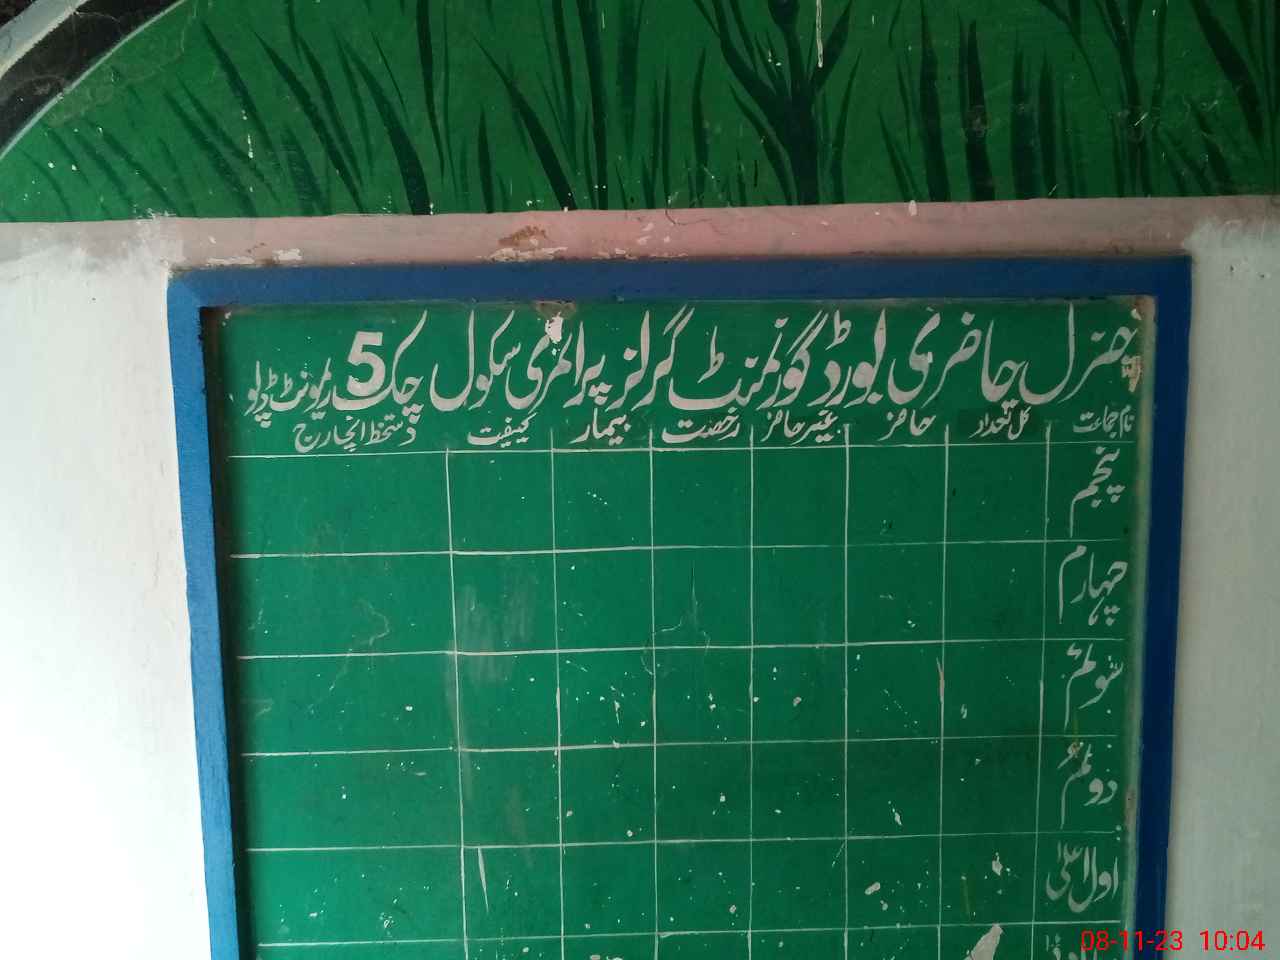 جنرل حاضری بورڈ گورنمنٹ گرلز پرائمری سکول چک 5 ریمونٹ ڈپلو
نام جماعت کل تعداد حاضر غیر حاضر رخصت بیمار کیفیت دستخط انچارج
پنجم
چہارم
سوئم
دوئم
اول اعلیٰ
08-11-23 10:04